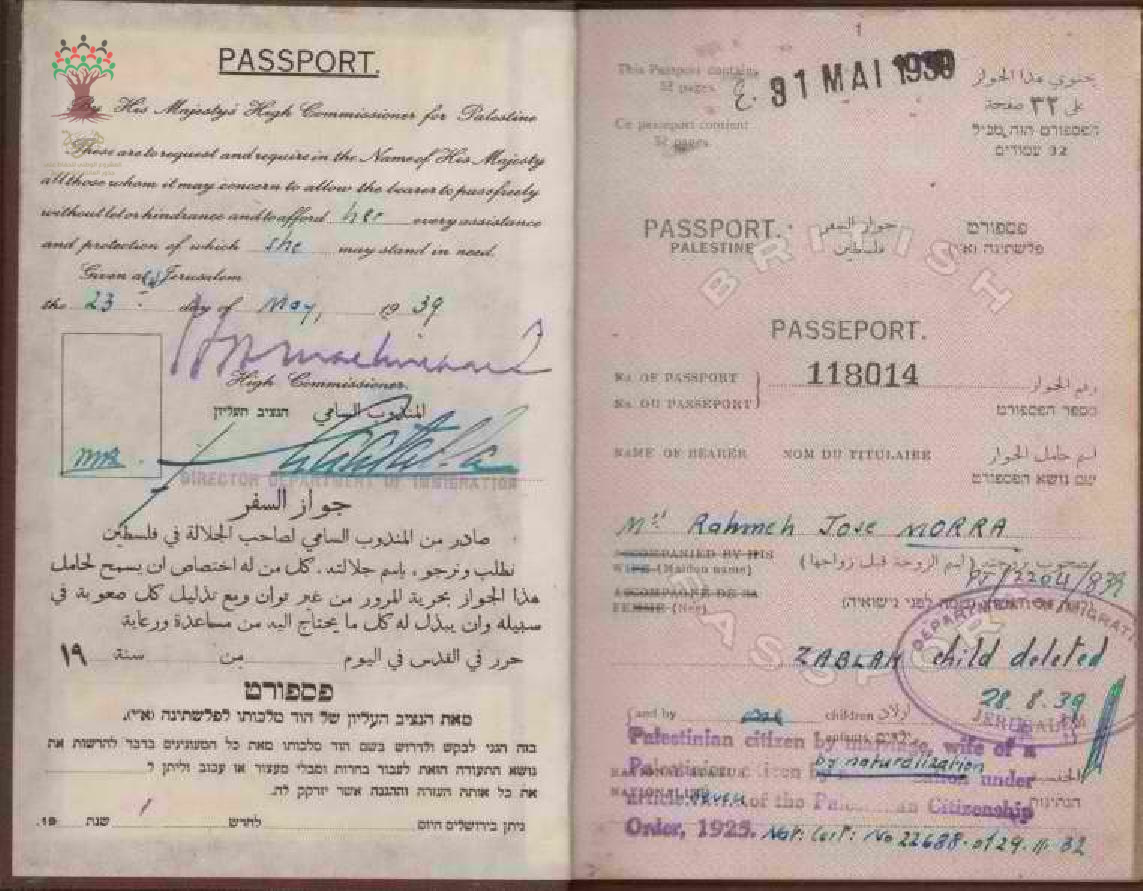 PASSPORT.
By His Majesty's High Commissioner for Palestine
These are to request and require in the Name of His Majesty
all those whom it may concern to allow the bearer to pass freely
without let or hindrance and to afford her every assistance
and protection of which she may stand in need.
Given at Jerusalem
the 23 day of May, 19 39
High Commissioner.
הנציב העליון المندوب السامي
DIRECTOR DEPARTMENT OF IMMIGRATION
جواز السفر
صادر من المندوب السامي لصاحب الجلالة في فلسطين
نطلب ونرجو، باسم جلالته، كل من له اختصاص ان يسمح لحامل
هذا الجواز بحرية المرور من غير توان ومع تذليل كل صعوبة في
سبيله وان يبذل له كل ما يحتاج اليه من مساعدة ورعاية
حرر في القدس في اليوم من سنة ١٩
פספורט
מאת הנציב העליון של הוד מלכותו לפלשתינה (א״י).
בזה הנני לבקש ולדרוש בשם הוד מלכותו מאת כל המעונינים בדבר להרשות את
נושא התעודה הזאת לעבור בחרות ומבלי מעצור או עכוב וליתן ל
את כל אותה העזרה וההגנה אשר יזדקק לה.
ניתן בירושלים היום לחדש שנת 19.
1
31 MAI 1939
This Passport contains
32 pages
Ce passeport contient
32 pages
يحتوي هذا الجواز
على ٣٢ صفحة
הפספורט הזה מכיל
32 עמודים
PASSPORT. جواز السفر פספורט
PALESTINE فلسطين פלשתינה (א״י)
BRITISH
PASSEPORT.
No. OF PASSPORT 118014 رقم الجواز
No. DU PASSEPORT מספר הפספורט
NAME OF BEARER NOM DU TITULAIRE اسم حامل الجواز
שם נושא הפספורט
Rahmeh Jose MORRA
ACCOMPANIED BY HIS
WIFE (Maiden name) (اسم الزوجة قبل زواجها)
ACCOMPAGNÉ DE SA
FEMME (Née)
DEPARTMENT OF
PASSPORT
ZABLAH child deleted
28.8.39
JERUSALEM
(and by children اولاد
Palestinian citizen by marriage, wife of a
Palestinian citizen by naturalization under
article seven of the Palestinian Citizenship
Order, 1925. Nat: Cert: No 22688 of 29.11.32